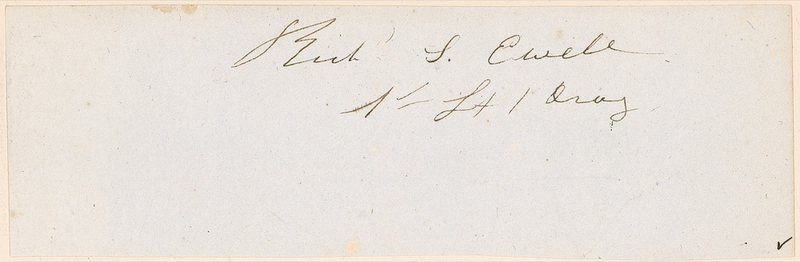 Rich^d S. Ewell
1st Lt 1 Drag